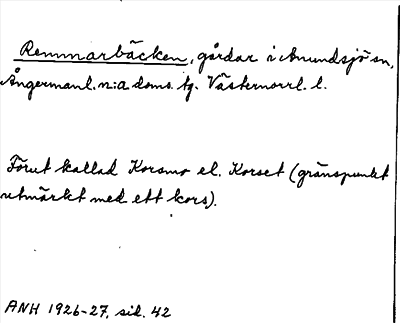 Remmarbäcken, gårdar i Anundsjö sn,
Ångermanl. n:a doms. tg. Västernorrl. l.
Förut kallad Korsmo el. Korset (gränspunkt
utmärkt med ett kors).
ANH 1926-27, sid. 42